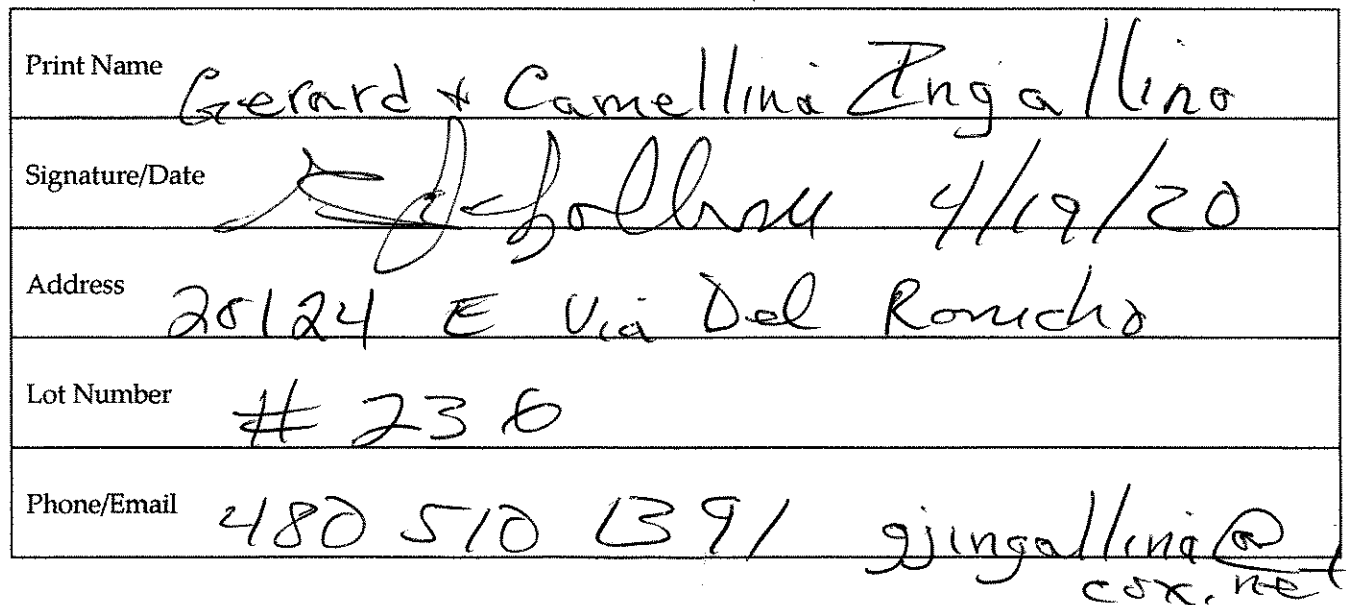 Print Name Gerard & Camellina Ingallina
Signature/Date 4/19/20
Address 28124 E Via Del Rancho
Lot Number # 236
Phone/Email 480 510 1391 gjingallina@
cox.net